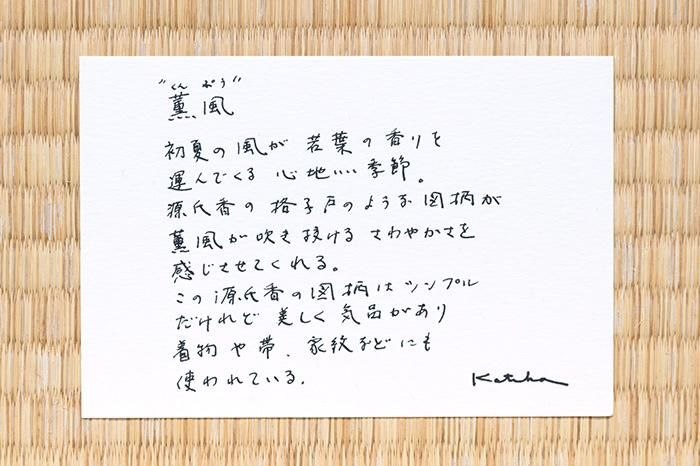 "くんぷう"
薫風
初夏の風が 若葉の香りを
運んでくる 心地いい季節。
源氏香の格子戸のような図柄が
薫風が吹き抜ける さわやかさを
感じさせてくれる。
この源氏香の図柄はシンプル
だけれど 美しく気品があり
着物や帯、家紋などにも
使われている。